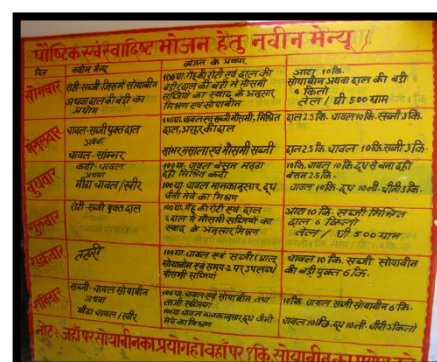 पौष्टिक एवं स्वादिष्ट भोजन हेतु नवीन मेन्यू
दिन नवीन मेन्यू व्यंजन के प्रकार
सोमवार
रोटी-सब्जी जिसमें सोयाबीन
अथवा दाल की बड़ी का
प्रयोग
100 ग्रा. गेहूं की रोटी एवं दाल की
बड़ी
सब्जियों का स्वाद के अनुसार
मिश्रण एवं सोयाबीन
आटा 10 कि.
सोयाबीन अथवा दाल की बड़ी
6 किलो
तेल / घी 500 ग्राम
मंगलवार
चावल-सब्जी युक्त दाल
अथवा
चावल-साम्भर
100 ग्रा. चावल एवं सब्जी मौसमी, मिश्रित
दाल, अरहर की दाल
सांभर मसाला एवं मौसमी सब्जी
दाल 2.5 कि. चावल 10 कि. सब्जी 3 कि.
दाल 2.5 कि. चावल 10 कि. सब्जी 3 कि.
बुधवार
कढ़ी-चावल
अथवा
मीठा चावल / खीर
100 ग्रा. चावल बेसन मट्ठा
दही मिश्रित कढ़ी
100 ग्रा. चावल मानकानुसार दूध
चीनी मेवे का मिश्रण
10 कि. चावल 10 कि. दूध से बना दही
बेसन 2.5 कि.
चावल 10 कि. दूध 10 ली. चीनी 3 कि.
गुरुवार
रोटी-सब्जी युक्त दाल
100 ग्रा. गेहूं की रोटी एवं दाल
दाल में मौसमी सब्जियों का
स्वाद के अनुसार मिश्रण
आटा 10 कि. सब्जी मिश्रित
दाल 6 किलो
तेल / घी 500 ग्राम
शुक्रवार
तहरी
100 ग्रा. चावल एवं सब्जी (आलू
सोयाबीन एवं समय पर उपलब्ध
मौसमी सब्जियां
चावल 10 कि. सब्जी सोयाबीन
की बड़ी युक्त 6 कि.
शनिवार
सब्जी-चावल सोयाबीन
अथवा
मीठा चावल / खीर
100 ग्रा. चावल एवं सोयाबीन तथा
ताजी सब्जियां
100 ग्रा. चावल मानकानुसार दूध चीनी
मेवे का मिश्रण
10 कि. चावल सब्जी सोयाबीन 6 कि.
चावल 10 कि. दूध 10 ली. चीनी 3 किलो
नोट : जहाँ पर सोयाबीन का प्रयोग हो वहाँ पर 1 कि. सोयाबीन का प्रयोग